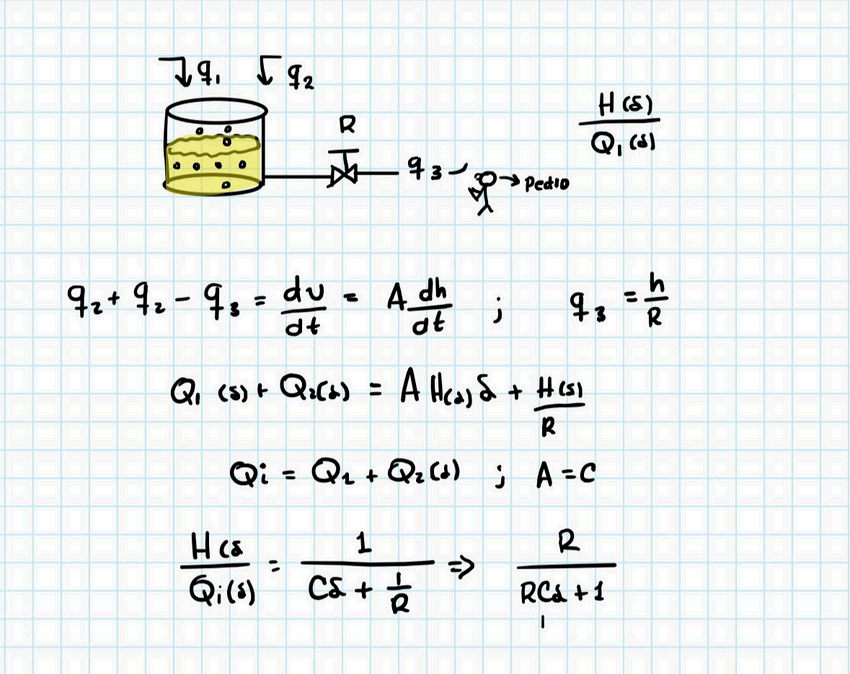 q₁ q₂
R
H(s)/Q₁(s)
q₃ → Pedro
q₂ + q₂ - q₃ = dv/dt = A dh/dt ; q₃ = h/R
Q₁(s) + Q₂(s) = A H(s) s + H(s)/R
Qi = Q₁ + Q₂(s) ; A = C
H(s/Qi(s) = 1/(Cs + 1/R) ⇒ R/(RCs + 1)